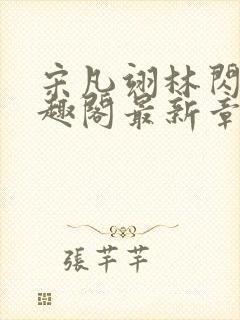 宋凡翊林閃
趣閣最新章
張芊芊